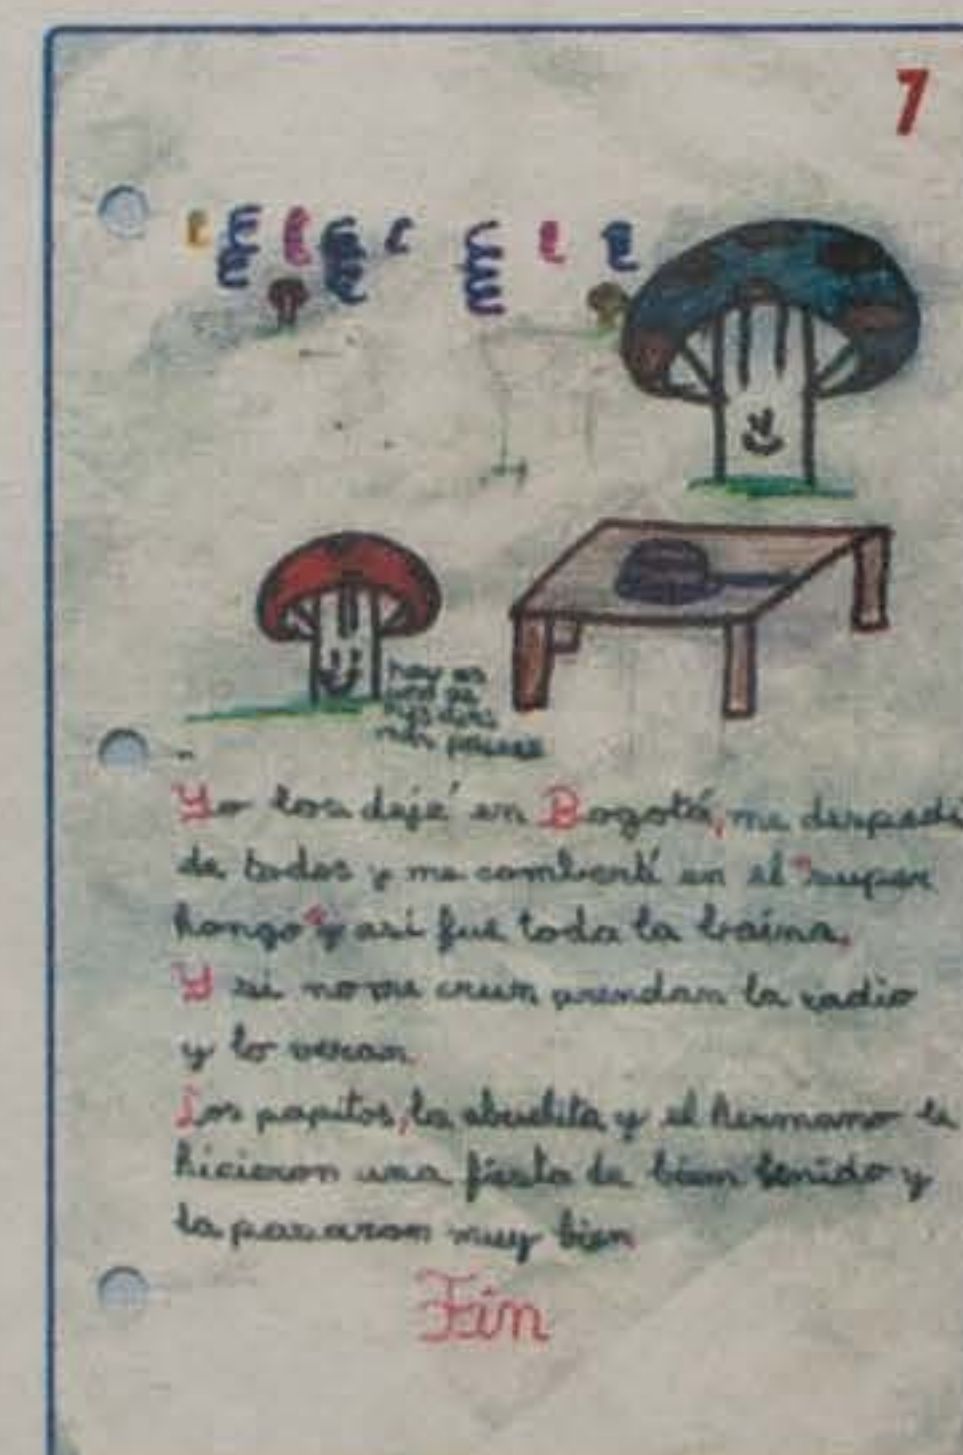 7
hay
Yo los dejé en Bogotá, me despedí
de todos y me combertí en el "super
hongo" y así fue toda la baina.
Y si no me creen prendan la radio
y lo veran.
Los papitos, la abuelita y el hermano le
hicieron una fiesta de bien benido y
la pasaron muy bien
Fin